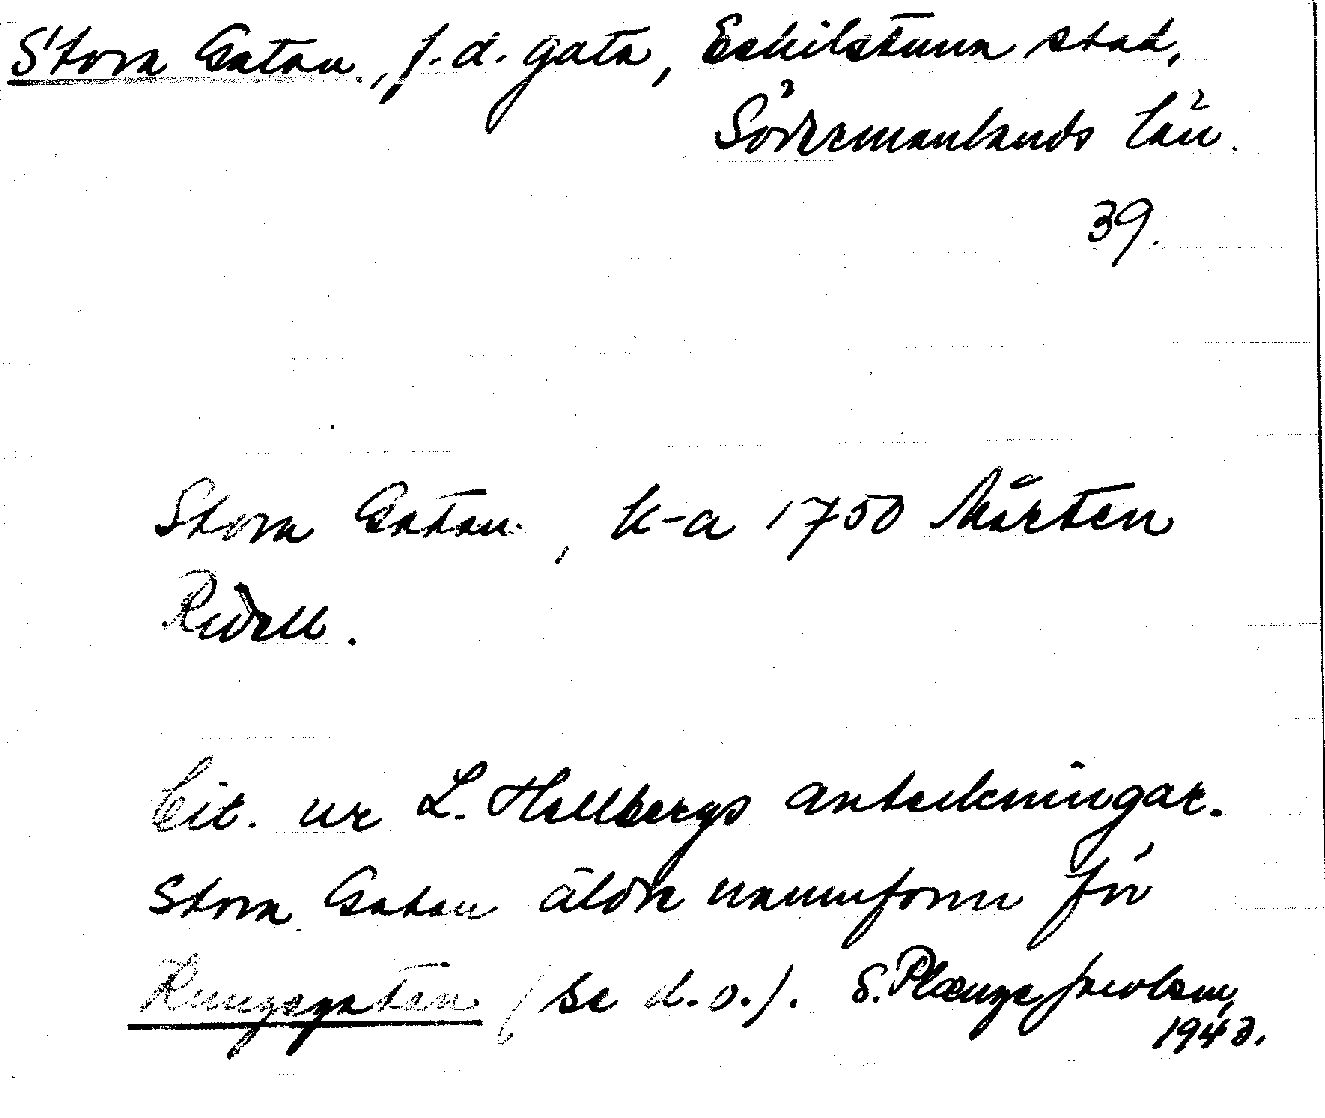 Stora Gatan, f.d. gata, Eskilstuna stad,
Södermanlands län.
39.
Stora Gatan, k-a 1750 Mårten
Ridell.
Cit. ur L. Hellbergs anteckningar.
Stora Gatan äldre namnform för
Kungsgatan (se d.o.). S. Plænge Jacobson,
1943.